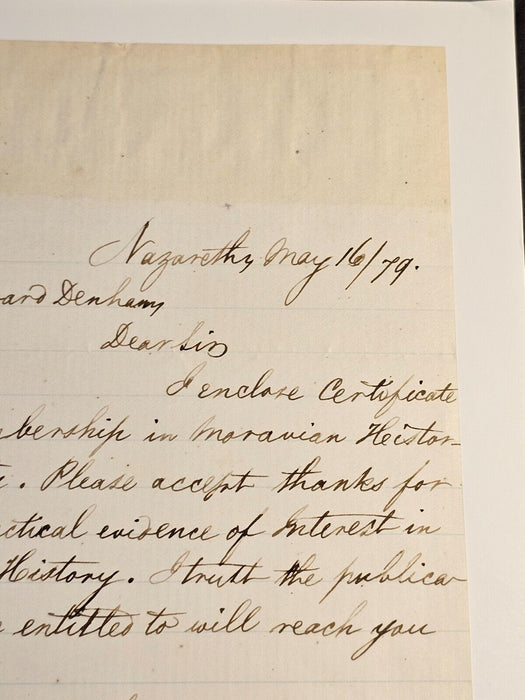 Nazareth, May 16/79.
ard Denham,
Dear Sir
I enclose Certificate
bership in Moravian Histor-
. Please accept thanks for
ctical evidence of Interest in
History. I trust the publica-
entitled to will reach you